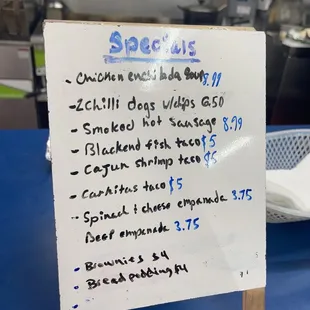 Specials
- Chicken enchilada Soup 8.99
- 2 chilli dogs w/chips 6.50
- Smoked hot sausage 8.99
- Blackend fish taco $5
- Cajun shrimp taco $5
- Carnitas taco $5
- Spinach + cheese empanada 3.75
Beef empanada 3.75
- Brownies $4
- Bread pudding $4
-